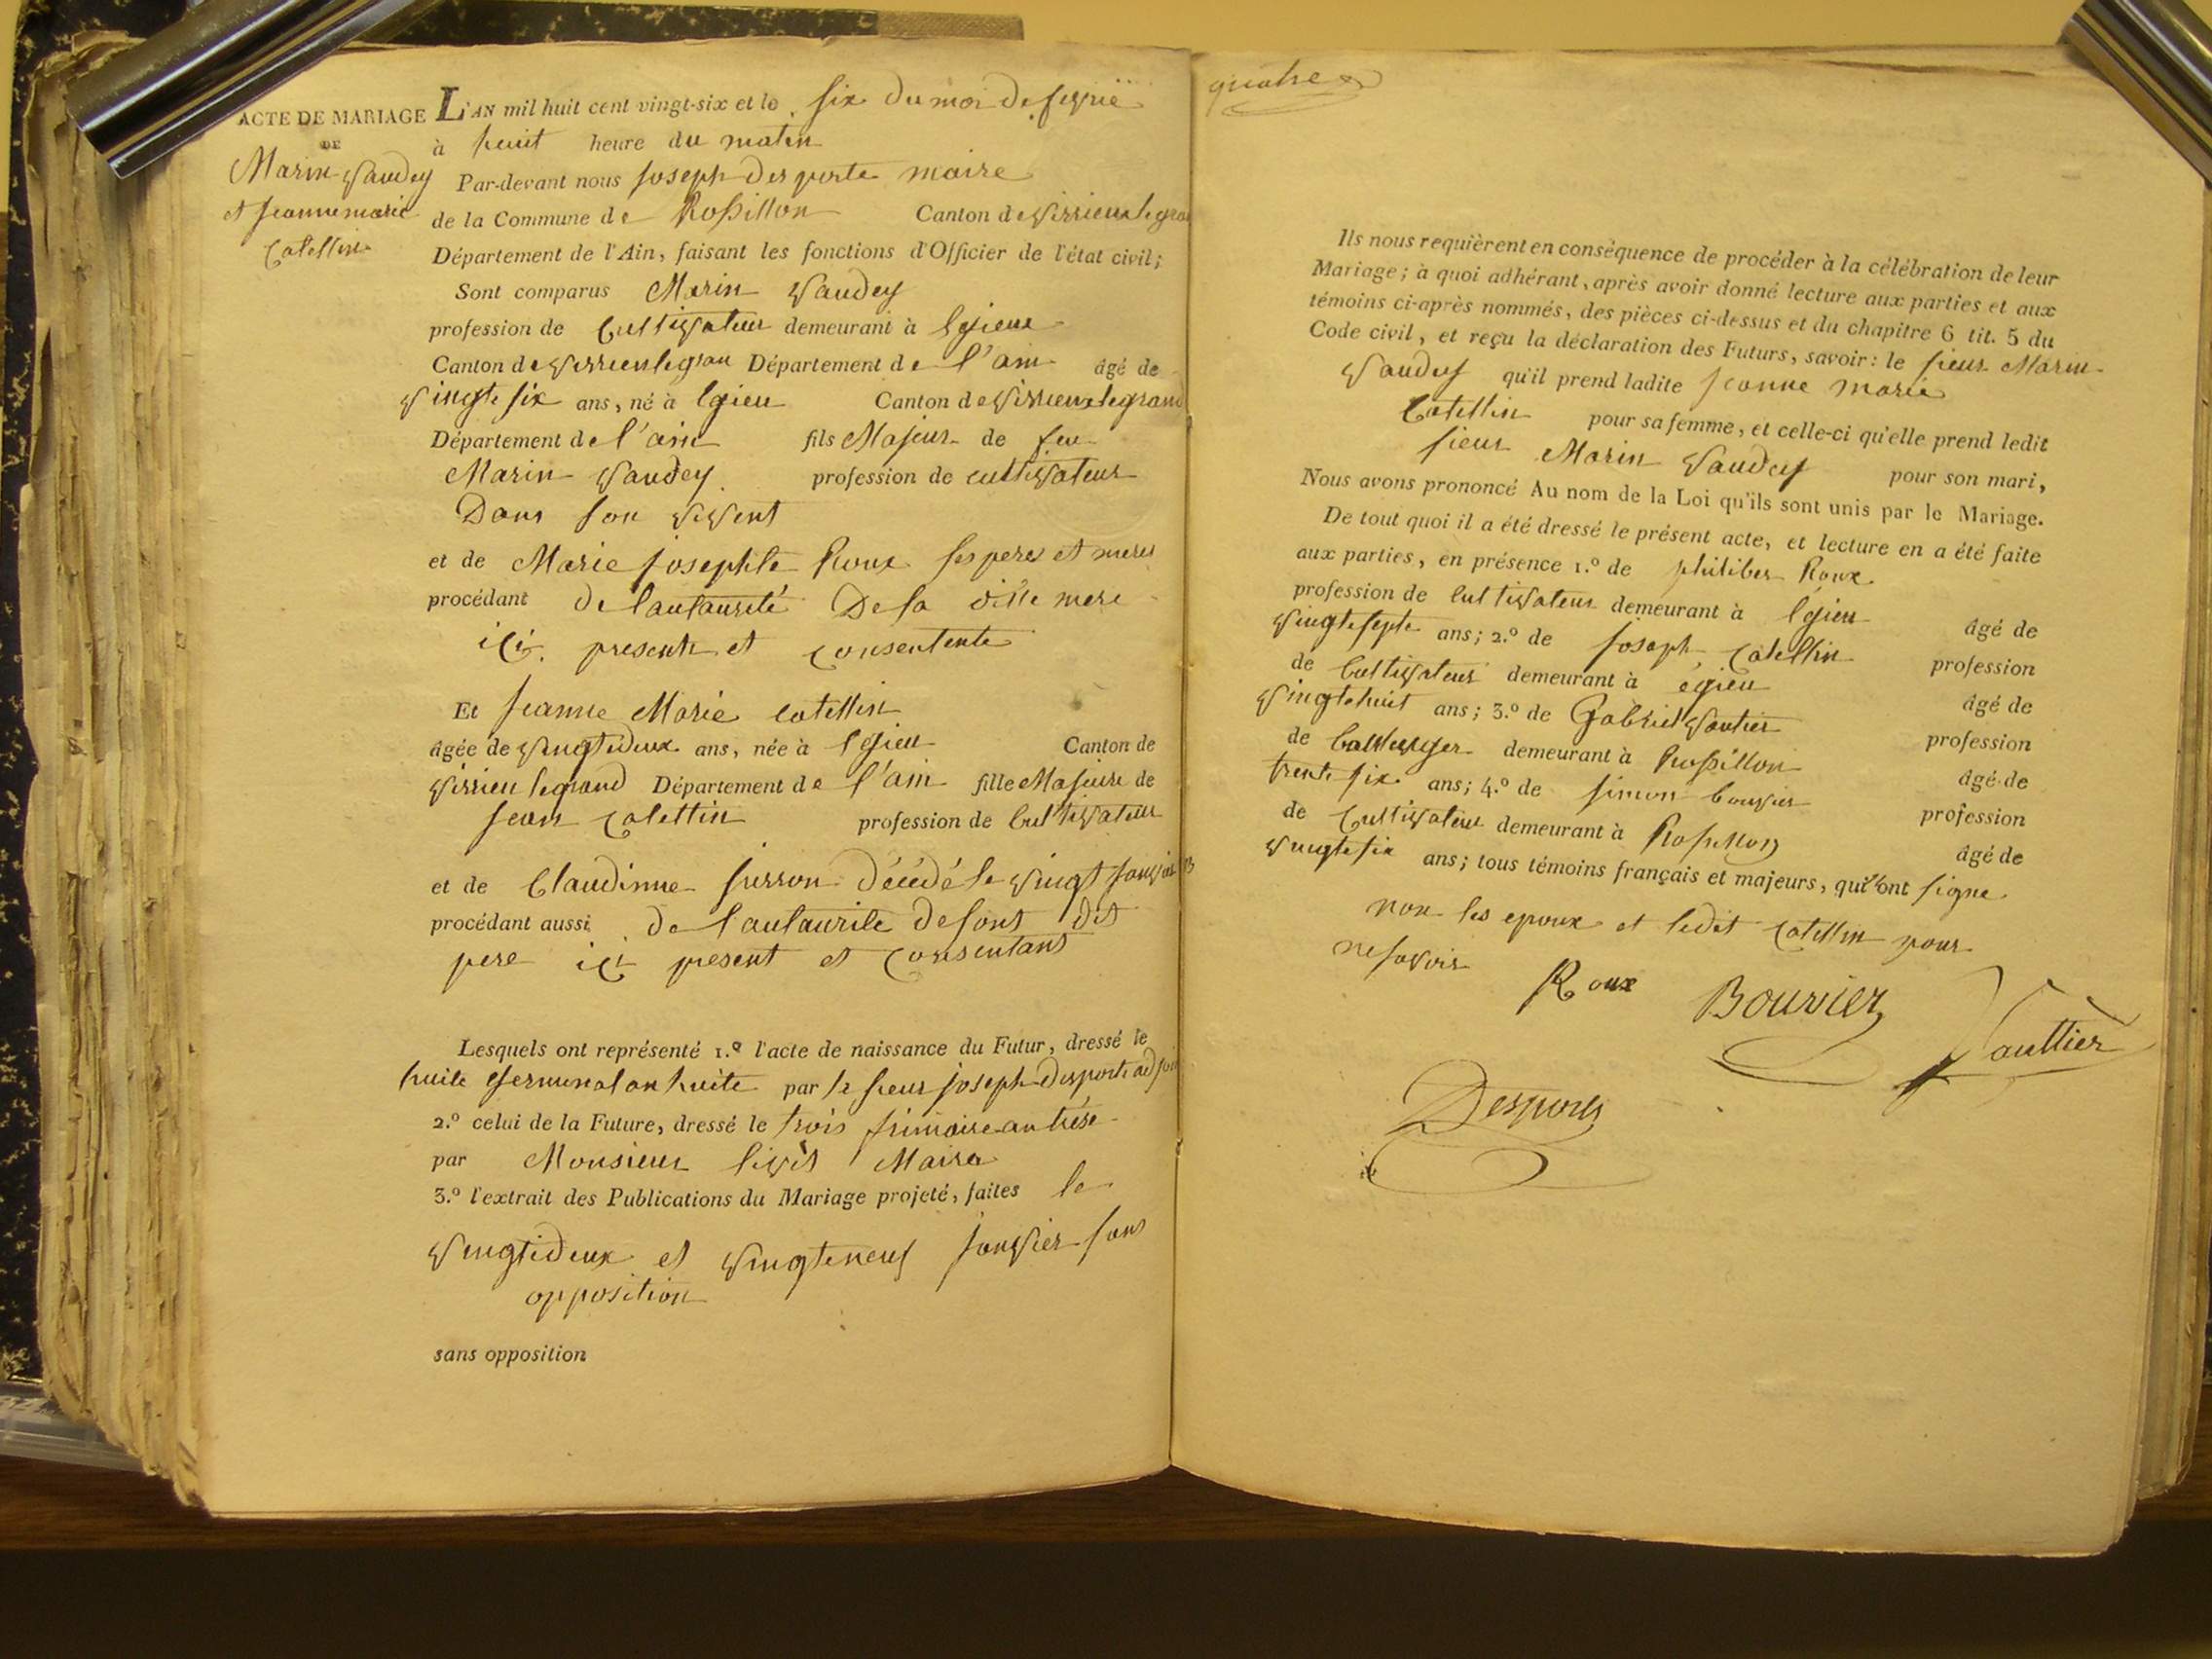 ACTE DE MARIAGE
DE
Marin Vaudey
et jeanne marie
Catellin
L'AN mil huit cent vingt-six et le six du moi de
à huit heure du matin
Par-devant nous joseph desporte maire
de la Commune de Rossillon Canton de virrieux le gran
Département de l'Ain, faisant les fonctions d'Officier de l'état civil;
Sont comparus Marin Vaudey
profession de Cultivateur demeurant à Egieux
Canton de virrieu le gran Département de l'ain âgé de
vingte six ans, né à Egieu Canton de virrieux le grand
Département de l'ain fils Majeur de feu
Marin Vaudey profession de cultivateur
Dans son vivent
et de Marie josephte Roux ses peres et meres
procédant de l'autaurité De sa ditte mere
ici presente et consentente
Et jeanne Marie catellin
âgée de vingtideux ans, née à Egieu Canton de
virrieu legrand Département de l'ain fille Majeure de
jean catellin profession de Cultivateur
et de Claudinne décédé le vingt
procédant aussi de l'autaurité de sont dit
pere ici present et consentant
Lesquels ont représenté 1.º l'acte de naissance du Futur, dressé le
huite germinal an huite par le sieur joseph desporte
2.º celui de la Future, dressé le trois frimaire an trese
par Monsieur Maire
3.º l'extrait des Publications du Mariage projeté, faites le
vingtideux et vingteneuf janvier sans
opposition
sans opposition
quatre
Ils nous requièrent en conséquence de procéder à la célébration de leur
Mariage; à quoi adhérant, après avoir donné lecture aux parties et aux
témoins ci-après nommés, des pièces ci-dessus et du chapitre 6 tit. 5 du
Code civil, et reçu la déclaration des Futurs, savoir: le sieur Marin
Vaudey qu'il prend ladite jeanne marie
Catellin pour sa femme, et celle-ci qu'elle prend ledit
sieur Marin Vaudey pour son mari,
Nous avons prononcé Au nom de la Loi qu'ils sont unis par le Mariage.
De tout quoi il a été dressé le présent acte, et lecture en a été faite
aux parties, en présence 1.º de philiber Roux
profession de cultivateur demeurant à Egieu âgé de
vingtesepte ans; 2.º de joseph catellin profession
de Cultivateur demeurant à egieu âgé de
vingtehuit ans; 3.º de Gabriel Vautier profession
de demeurant à Rossillon âgé de
trente six ans; 4.º de simon bouvier profession
de Cultivateur demeurant à Rossillon âgé de
vingtesix ans; tous témoins français et majeurs, qui ont signe
non les epoux et ledit catellin pour
ne savoir
Roux Bouvier Vauttier
Desporte